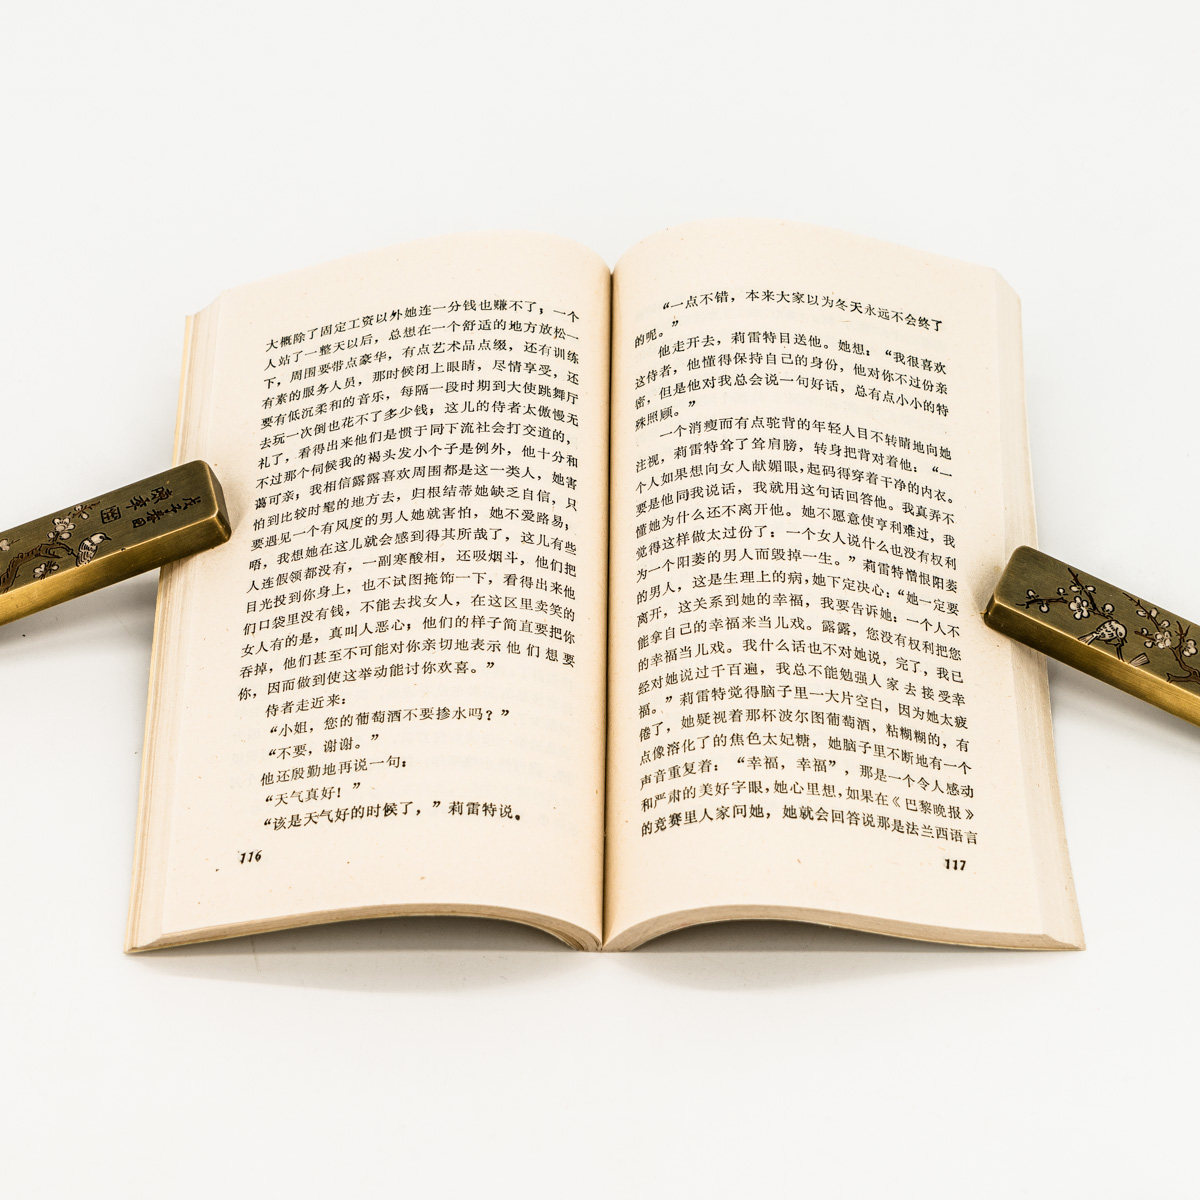 大概除了固定工资以外她连一分钱也赚不了；一个
人站了一整天以后，总想在一个舒适的地方放松一
下，周围要带点豪华，有点艺术品点缀，还有训练
有素的服务人员，那时候闭上眼睛，尽情享受，还
要有低沉柔和的音乐，每隔一段时期到大使跳舞厅
去玩一次倒也花不了多少钱；这儿的侍者太傲慢无
礼了，看得出来他们是惯于同下流社会打交道的，
不过那个伺候我的褐头发小个子是例外，他十分和
蔼可亲；我相信露露喜欢周围都是这一类人，她害
怕到比较时髦的地方去，归根结蒂她缺乏自信，只
要遇见一个有风度的男人她就害怕，她不爱路易；
唔，我想她在这儿就会感到得其所哉了，这儿有些
人连假领都没有，一副寒酸相，还吸烟斗，他们把
目光投到你身上，也不试图掩饰一下，看得出来他
们口袋里没有钱，不能去找女人，在这区里卖笑的
女人有的是，真叫人恶心；他们的样子简直要把你
吞掉，他们甚至不可能对你亲切地表示他们想要
你，因而做到使这举动能讨你欢喜。”
侍者走近来：
“小姐，您的葡萄酒不要掺水吗？”
“不要，谢谢。”
他还殷勤地再说一句：
“天气真好！”
“该是天气好的时候了，”莉雷特说。
116
“一点不错，本来大家以为冬天永远不会终了
的呢。”
他走开去，莉雷特目送他。她想：“我很喜欢
这侍者，他懂得保持自己的身份，他对你不过份亲
密，但是他对我总会说一句好话，总有点小小的特
殊照顾。”
一个消瘦而有点驼背的年轻人目不转睛地向她
注视，莉雷特耸了耸肩膀，转身把背对着他：“一
个人如果想向女人献媚眼，起码得穿着干净的内衣。
要是他同我说话，我就用这句话回答他。我真弄不
懂她为什么还不离开他。她不愿意使亨利难过，我
觉得这样做太过份了：一个女人说什么也没有权利
为一个阳萎的男人而毁掉一生。”莉雷特憎恨阳萎
的男人，这是生理上的病，她下定决心：“她一定要
离开，这关系到她的幸福，我要告诉她：一个人不
能拿自己的幸福来当儿戏。露露，您没有权利把您
的幸福当儿戏。我什么话也不对她说，完了，我已
经对她说过千百遍，我总不能勉强人家去接受幸
福。”莉雷特觉得脑子里一大片空白，因为她太疲
倦了，她疑视着那杯波尔图葡萄酒，粘糊糊的，有
点像溶化了的焦色太妃糖，她脑子里不断地有一个
声音重复着：“幸福，幸福”，那是一个令人感动
和严肃的美好字眼，她心里想，如果在《巴黎晚报》
的竞赛里人家问她，她就会回答说那是法兰西语言
117